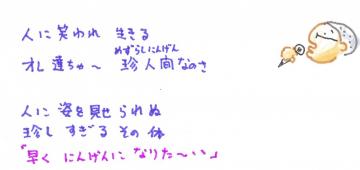 人に笑われ 生きる
めずらしにんげん
オレ達ちゃ～ 珍人間なのさ
人に姿を見せられぬ
珍しすぎるその体
「早くにんげんになりた～い」